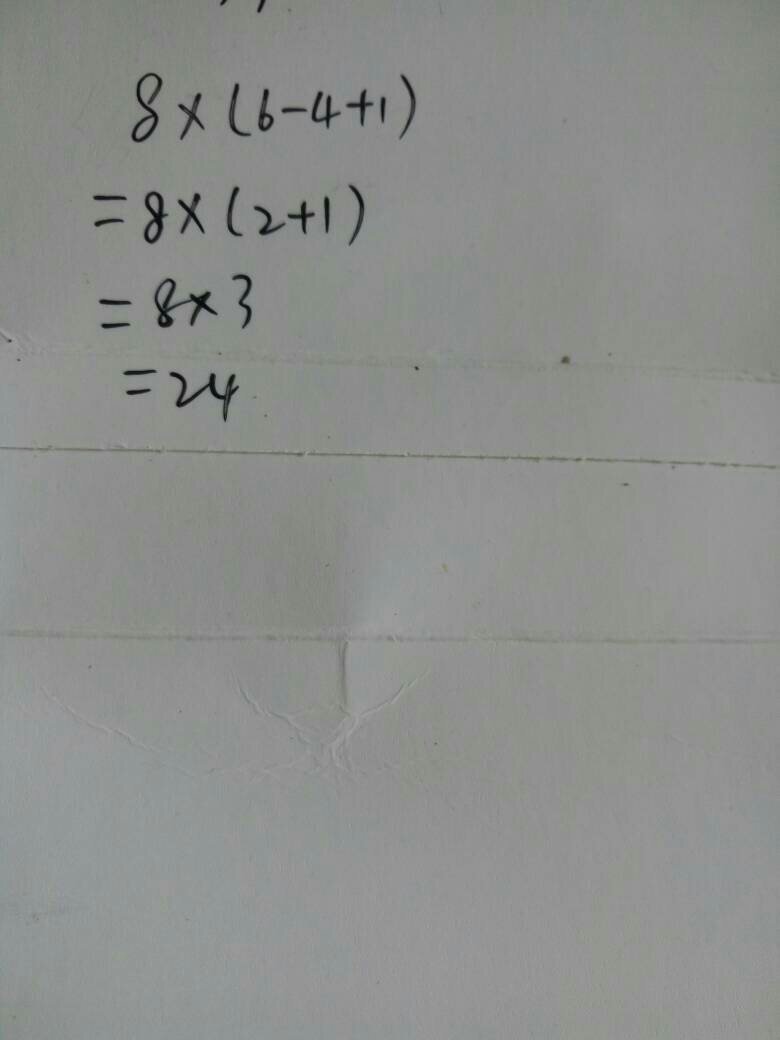 8×(6-4+1)
=8×(2+1)
=8×3
=24